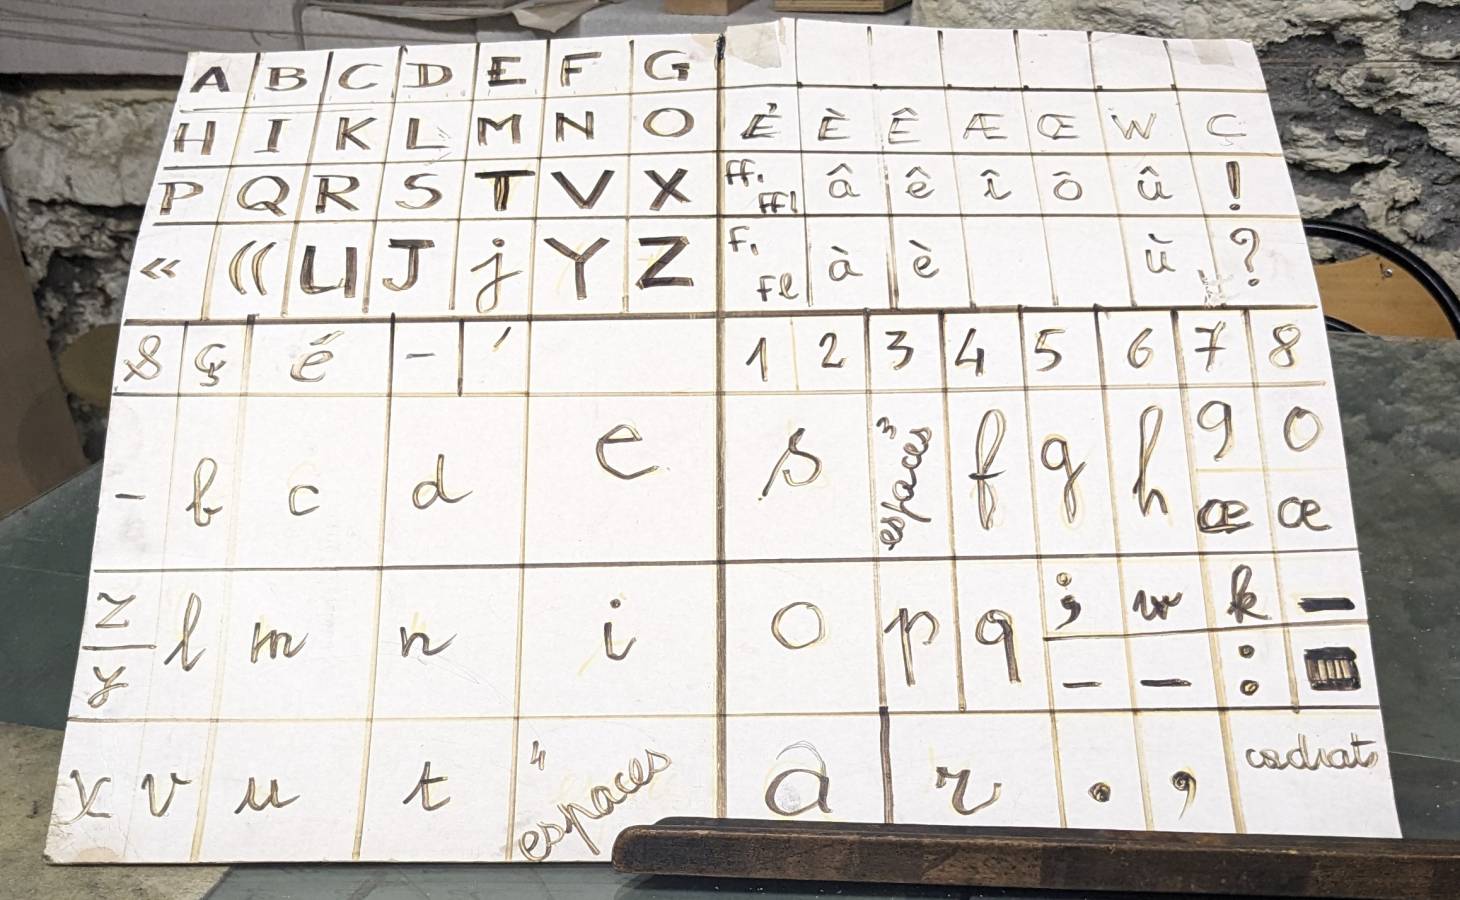 A B C D E F G
H I K L M N O É È Ê Æ Œ W Ç
P Q R S T V X ffi ffl â ê î ô û !
« (( U J j Y Z fi fl à è ù ?
& ç é - ' 1 2 3 4 5 6 7 8
- b c d e s 3 espaces f g h 9 0
œ æ
z y l m n i o p q ; w k —
— — :
x v u t 4 espaces a r . , cadrats